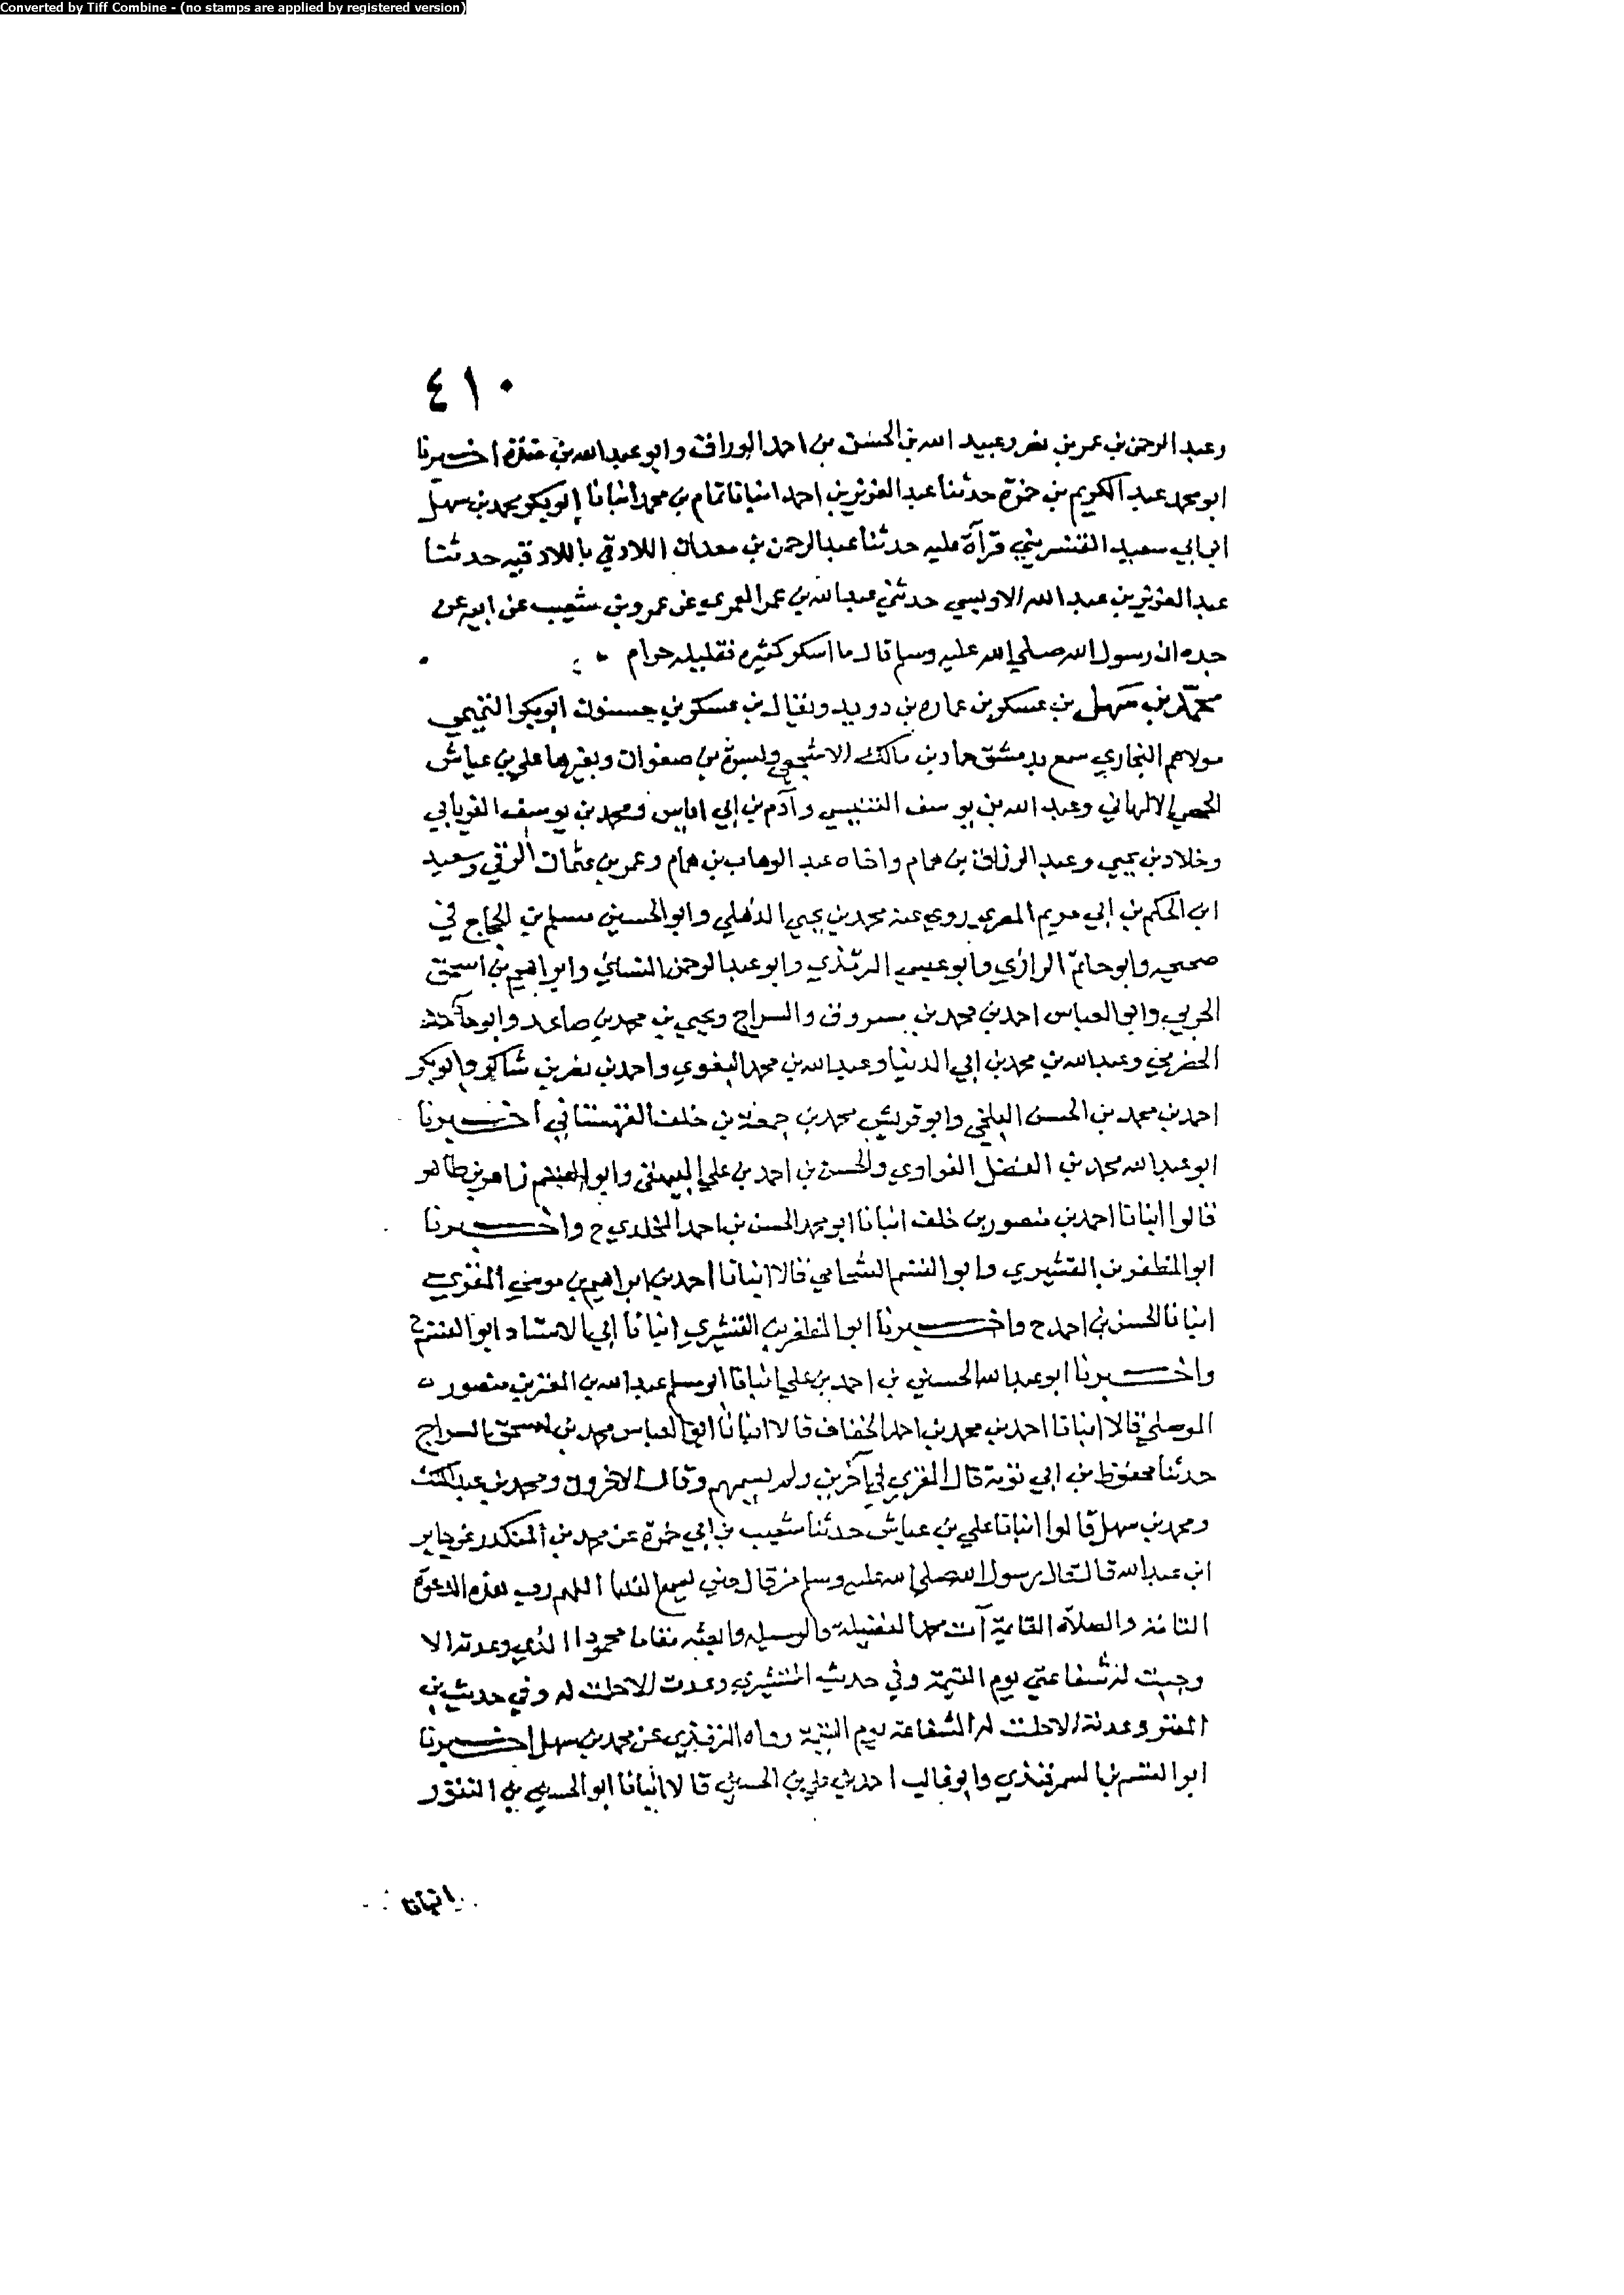 Converted by Tiff Combine - (no stamps are applied by registered version)
٤١٠
وعبد الرحمن بن عمر بن نصر وعبيد الله بن الحسن بن احمد الوراق وابو عبد الله بن اخبرنا
ابو محمد عبد الكريم بن حمزة حدثنا عبد العزيز بن احمد انبانا تمام بن محمد انبانا ابو بكر محمد بن سهل
ابن ابي سعيد القنسريني قرآة عليه حدثنا عبد الرحمن بن معدان اللادقي باللادقيه حدثنا
عبد العزيز بن عبد الله الاويسي حدثني عبد الله بن عمر العمري عن عمرو بن شعيب عن ابيه عن
جده ان رسول الله صلي الله عليه وسلم قال ما اسكر كثيره فقليله حرام
محمد بن سهل بن عسكر بن عماره بن دويد ويقال بن عسكر بن حسنون ابو بكر التميمي
مولاهم البخاري سمع بدمشق حماد بن مالك الاشجعي ويسرة بن صفوان وبغيرها علي بن عياش
الحمصي الالهاني وعبد الله بن يوسف التنيسي وآدم بن ابي اياس ومحمد بن يوسف الفريابي
وخلاد بن يحيي وعبد الرزاق بن همام واخاه عبد الوهاب بن همام وعمر بن عثمان الرقي وسعيد
ابن الحكم بن ابي مريم المصري روي عنه محمد بن يحيي الذهلي وابو الحسين مسلم بن الحجاج في
صحيحه وابو حاتم الرازي وابو عيسي الترمذي وابو عبد الرحمن النسائي وابراهيم بن اسحق
الحربي وابو العباس احمد بن محمد بن مسروق والسراج ويحيي بن محمد بن صاعد وابو حامد
الحضرمي وعبد الله بن محمد بن ابي الدنيا وعبد الله بن محمد البغوي واحمد بن نصر بن شاكر وابو بكر
احمد بن محمد بن الحسن البلخي وابو قريش محمد بن جمعة بن خلف القهستاني اخبرنا
ابو عبد الله محمد بن الفضل الفراوي والحسن بن احمد بن علي البيهقي وابو القسم زاهر بن طاهر
قالوا انبانا احمد بن منصور بن خلف انبانا ابو محمد الحسن بن احمد المخلدي ح واخبرنا
ابو المظفر بن القشيري وابو القسم الشحامي قالا انبانا احمد بن ابراهيم بن موسي المقري
انبانا الحسن بن احمد ح واخبرنا ابو المظفر بن القشيري انبانا ابي الاستاد ابو القسم ح
واخبرنا ابو عبد الله الحسين بن احمد بن علي انبانا ابو مسلم عبد الله بن المعتز بن منصور
الموصلي قالا انبانا احمد بن محمد بن احمد الخفاف قالا انبانا ابو العباس محمد بن اسحق السراج
حدثنا محفوظ بن ابي توبة قال المقري في آخرين ولم يسمهم وقال الاخرون ومحمد بن عبد الملك
ومحمد بن سهل قالوا انبانا علي بن عياش حدثنا شعيب بن ابي حمزة عن محمد بن المنكدر عن جابر
ابن عبد الله قال قال رسول الله صلي الله عليه وسلم من قال حين يسمع الندا اللهم رب هذه الدعوة
التامة والصلاة القايمة آت محمدا الفضيلة والوسيله وابعثه مقاما محمودا الذي وعدته الا
وجبت له شفاعتي يوم القيمة وفي حديث القشيري وعدت الا حلت له وفي حديث بن
المعتز وعدته الا حلت له الشفاعة يوم القيمة رواه الترمذي عن محمد بن سهل اخبرنا
ابو القسم بن السمرقندي وابو غالب احمد بن علي بن الحسين قالا انبانا ابو الحسين بن النقور
انبانا